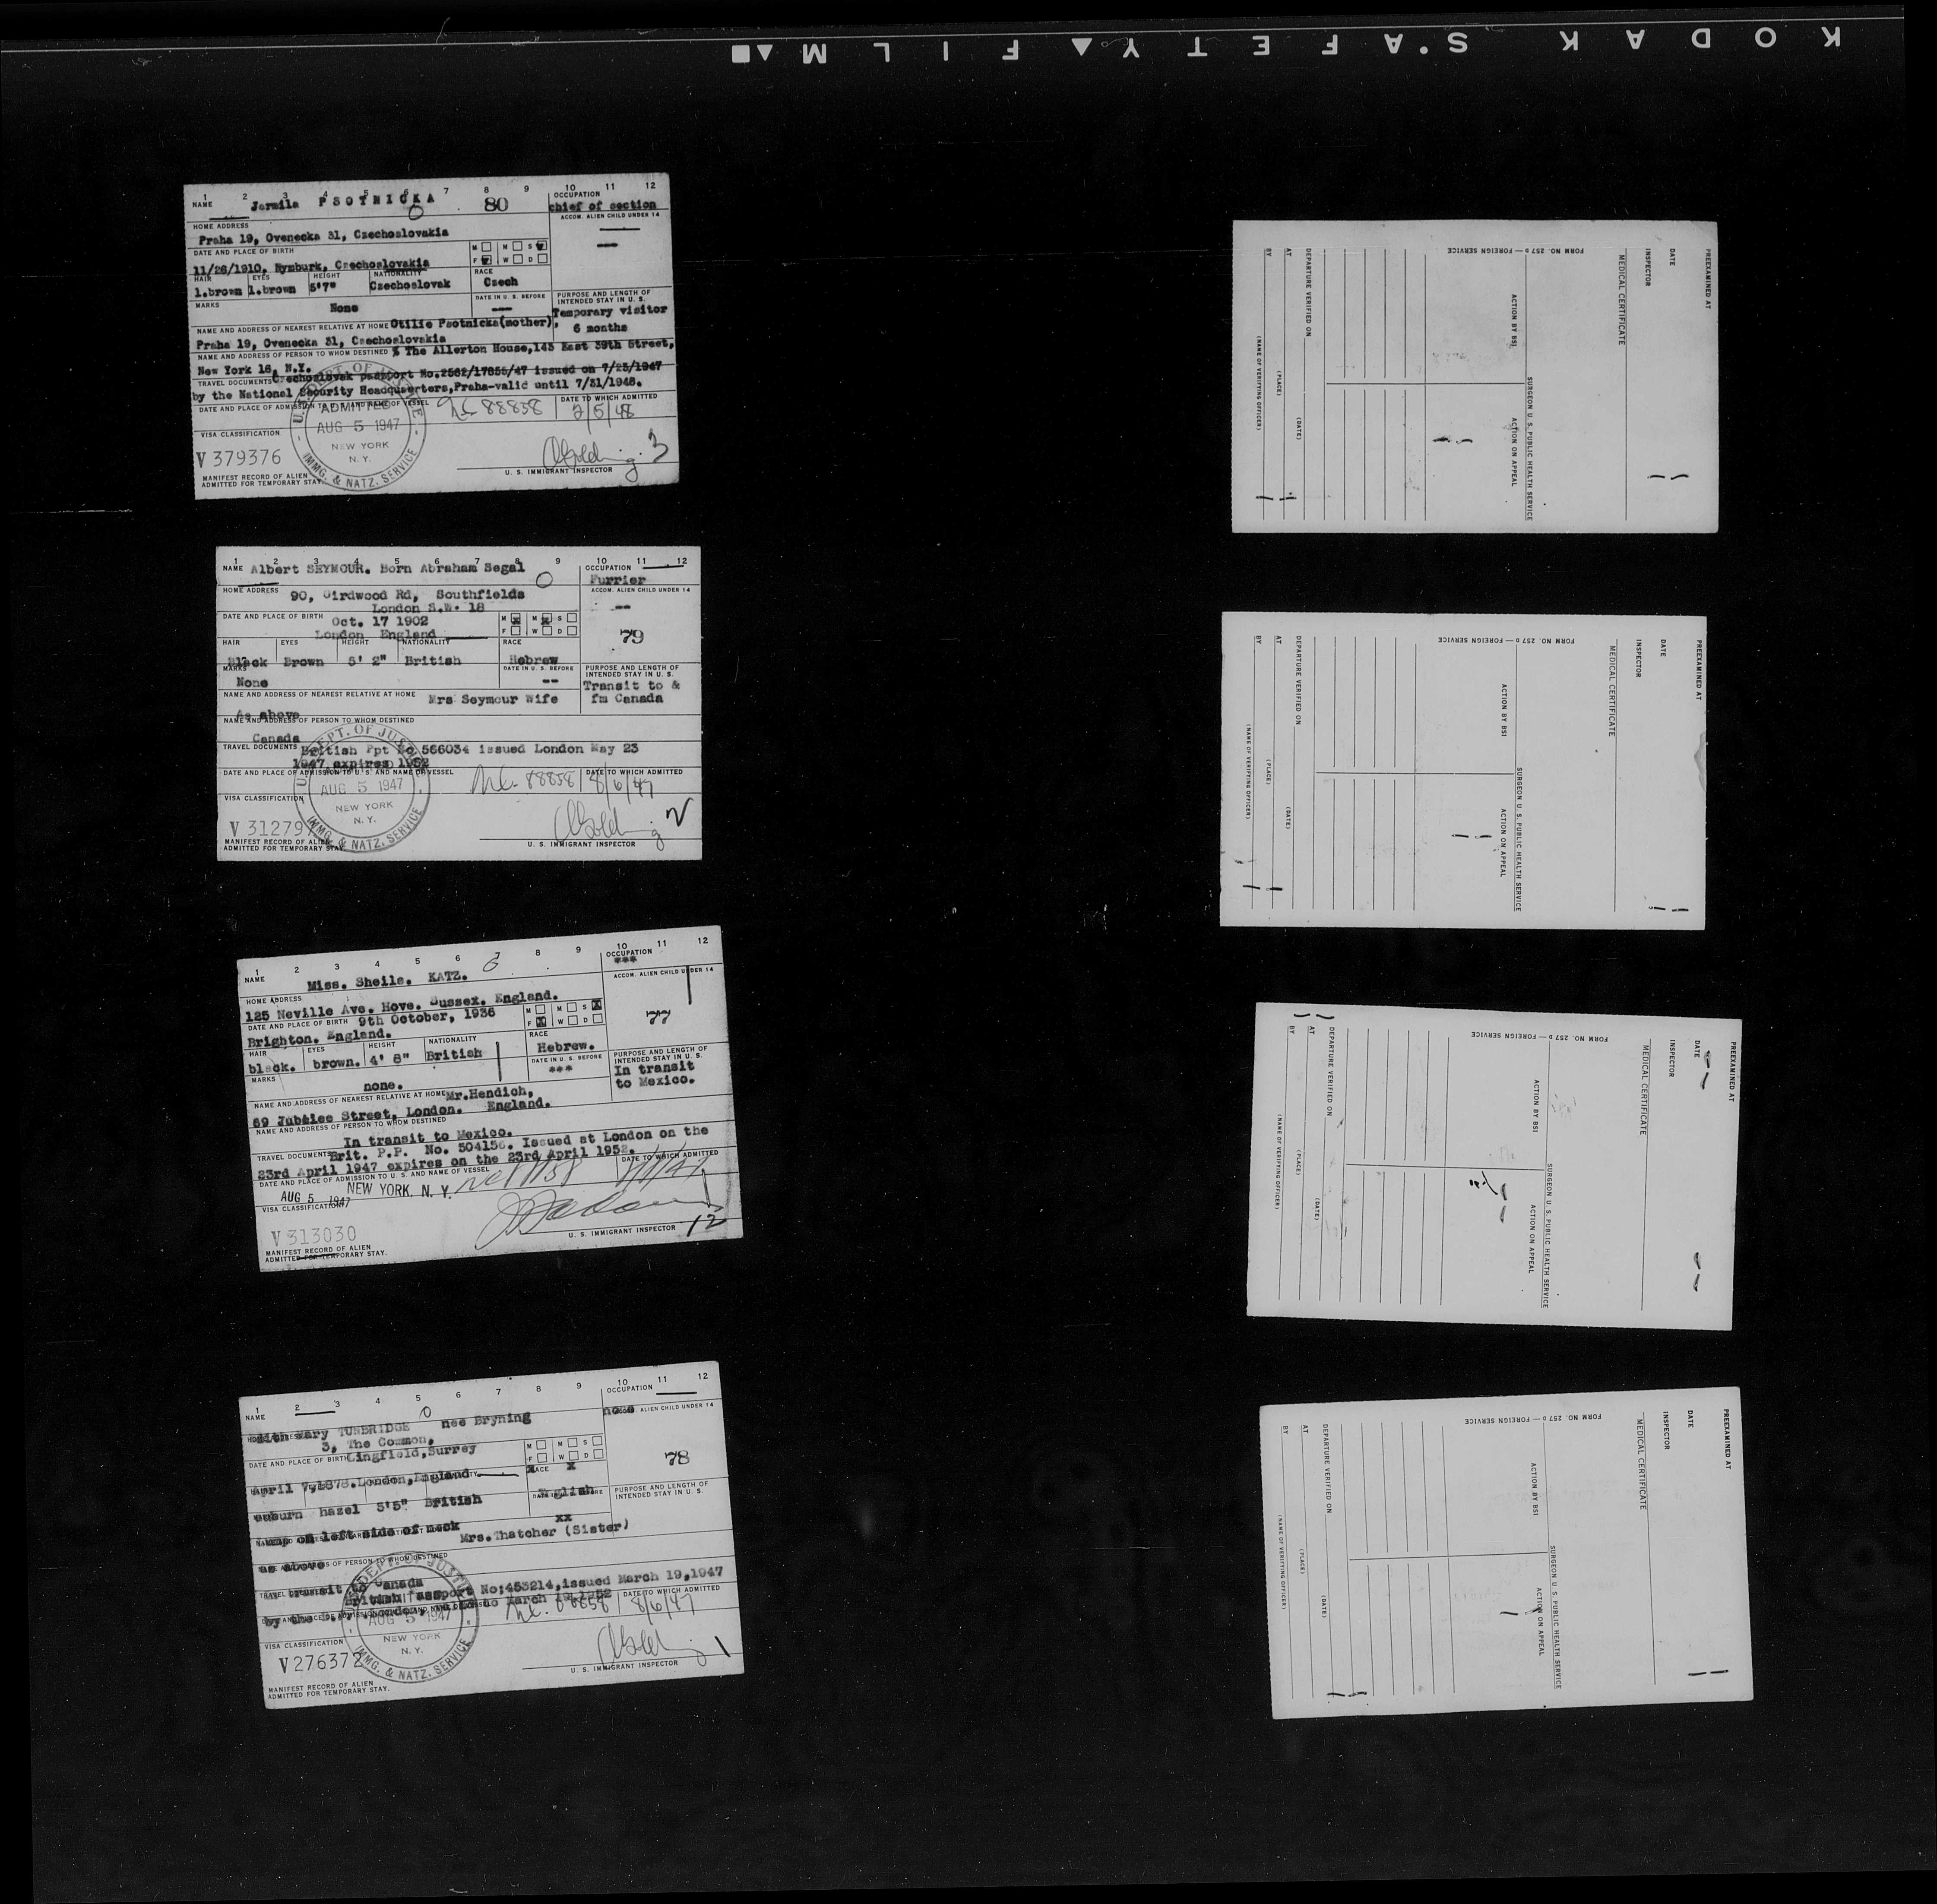 KODAK S.AFETY FILM
1 2 3 4 5 6 7 8 9 10 11 12
NAME Jarmila PSOTNICKA 80
OCCUPATION
chief of section
ACCOM. ALIEN CHILD UNDER 14
HOME ADDRESS
Praha 19, Ovenecka 31, Czechoslovakia
DATE AND PLACE OF BIRTH
M M S
F W D
11/26/1910, Nymburk, Czechoslovakia
HAIR EYES HEIGHT NATIONALITY RACE
l.brown l.brown 5'7" Czechoslovak Czech
MARKS None
DATE IN U. S. BEFORE
PURPOSE AND LENGTH OF
INTENDED STAY IN U. S.
Temporary visitor
6 months
NAME AND ADDRESS OF NEAREST RELATIVE AT HOME Otilie Psotnicka(mother),
Praha 19, Ovenecka 31, Czechoslovakia
NAME AND ADDRESS OF PERSON TO WHOM DESTINED % The Allerton House,143 East 39th Street,
New York 16, N.Y.
TRAVEL DOCUMENTS Czechoslovak passport No.2562/17655/47 issued on 7/23/1947
by the National Security Headquarters,Praha-valid until 7/31/1948.
DATE AND PLACE OF ADMISSION TO U. S. AND NAME OF VESSEL
DATE TO WHICH ADMITTED
88858 2/5/48
U. S. DEPT. OF JUSTICE
ADMITTED
AUG 5 1947
NEW YORK
N. Y.
IMMG. & NATZ. SERVICE
VISA CLASSIFICATION
V 379376
3
U. S. IMMIGRANT INSPECTOR
MANIFEST RECORD OF ALIEN
ADMITTED FOR TEMPORARY STAY.
1 2 3 4 5 6 7 8 9 10 11 12
NAME Albert SEYMOUR. Born Abraham Segal
OCCUPATION
Furrier
ACCOM. ALIEN CHILD UNDER 14
--
79
HOME ADDRESS 90, Girdwood Rd, Southfields
London S.W. 18
DATE AND PLACE OF BIRTH Oct. 17 1902
London England
M M S
F W D
HAIR EYES HEIGHT NATIONALITY RACE
Black Brown 5' 2" British Hebrew
MARKS
None
DATE IN U. S. BEFORE
--
PURPOSE AND LENGTH OF
INTENDED STAY IN U. S.
Transit to &
fm Canada
NAME AND ADDRESS OF NEAREST RELATIVE AT HOME Mrs Seymour Wife
As above
NAME AND ADDRESS OF PERSON TO WHOM DESTINED
Canada
TRAVEL DOCUMENTS British Ppt No 566034 issued London May 23
1947 expires 1952
DATE AND PLACE OF ADMISSION TO U. S. AND NAME OF VESSEL
DATE TO WHICH ADMITTED
88858 8/6/47
U. S. DEPT. OF JUSTICE
AUG 5 1947
NEW YORK
N. Y.
IMMG. & NATZ. SERVICE
VISA CLASSIFICATION
V 31279
2
U. S. IMMIGRANT INSPECTOR
MANIFEST RECORD OF ALIEN
ADMITTED FOR TEMPORARY STAY
1 2 3 4 5 6 7 8 9 10 11 12
NAME Miss. Sheila. KATZ.
OCCUPATION
***
ACCOM. ALIEN CHILD UNDER 14
77
HOME ADDRESS
125 Neville Ave. Hove. Sussex. England.
DATE AND PLACE OF BIRTH 9th October, 1936
Brighton. England.
M M S
F W D
HAIR EYES HEIGHT NATIONALITY RACE
black. brown. 4' 8" British Hebrew.
MARKS
none.
DATE IN U. S. BEFORE
***
PURPOSE AND LENGTH OF
INTENDED STAY IN U. S.
In transit
to Mexico.
NAME AND ADDRESS OF NEAREST RELATIVE AT HOME Mr.Hendich,
69 Jubilee Street, London. England.
NAME AND ADDRESS OF PERSON TO WHOM DESTINED
In transit to Mexico.
TRAVEL DOCUMENTS Brit. P.P. No. 504156. Issued at London on the
23rd April 1947 expires on the 23rd April 1952.
DATE AND PLACE OF ADMISSION TO U. S. AND NAME OF VESSEL
DATE TO WHICH ADMITTED
AUG 5 1947 NEW YORK, N. Y.
VISA CLASSIFICATION
V 313030
12
U. S. IMMIGRANT INSPECTOR
MANIFEST RECORD OF ALIEN
ADMITTED FOR TEMPORARY STAY.
1 2 3 4 5 6 7 8 9 10 11 12
NAME
OCCUPATION
none ALIEN CHILD UNDER 14
78
Edith Mary TUNBRIDGE nee Bryning
3, The Common,
DATE AND PLACE OF BIRTH Lingfield,Surrey
M M S
F W D
April 7,1878.London,England
RACE
auburn hazel 5'5" British English
PURPOSE AND LENGTH OF
INTENDED STAY IN U. S.
lump on left side of neck
xx
Mrs.Thatcher (Sister)
as above
ADDRESS OF PERSON TO WHOM DESTINED
transit to Canada
British Passport No;453214,issued March 19,1947
by the March 19,1952
DATE TO WHICH ADMITTED
88858 8/6/47
DEPT. OF JUSTICE
AUG 5 1947
NEW YORK
N. Y.
IMMG. & NATZ. SERVICE
VISA CLASSIFICATION
V276372
1
U. S. IMMIGRANT INSPECTOR
MANIFEST RECORD OF ALIEN
ADMITTED FOR TEMPORARY STAY.
PREEXAMINED AT
DATE
INSPECTOR
MEDICAL CERTIFICATE
SURGEON U. S. PUBLIC HEALTH SERVICE
ACTION BY BSI
ACTION ON APPEAL
DEPARTURE VERIFIED ON
(DATE)
AT
(PLACE)
BY
(NAME OF VERIFYING OFFICER)
FORM NO. 257 D — FOREIGN SERVICE
PREEXAMINED AT
DATE
INSPECTOR
MEDICAL CERTIFICATE
SURGEON U. S. PUBLIC HEALTH SERVICE
ACTION BY BSI
ACTION ON APPEAL
DEPARTURE VERIFIED ON
(DATE)
AT
(PLACE)
BY
(NAME OF VERIFYING OFFICER)
FORM NO. 257 D — FOREIGN SERVICE
PREEXAMINED AT
DATE
INSPECTOR
MEDICAL CERTIFICATE
SURGEON U. S. PUBLIC HEALTH SERVICE
ACTION BY BSI
ACTION ON APPEAL
DEPARTURE VERIFIED ON
(DATE)
AT
(PLACE)
BY
(NAME OF VERIFYING OFFICER)
FORM NO. 257 D — FOREIGN SERVICE
PREEXAMINED AT
DATE
INSPECTOR
MEDICAL CERTIFICATE
SURGEON U. S. PUBLIC HEALTH SERVICE
ACTION BY BSI
ACTION ON APPEAL
DEPARTURE VERIFIED ON
(DATE)
AT
(PLACE)
BY
(NAME OF VERIFYING OFFICER)
FORM NO. 257 D — FOREIGN SERVICE